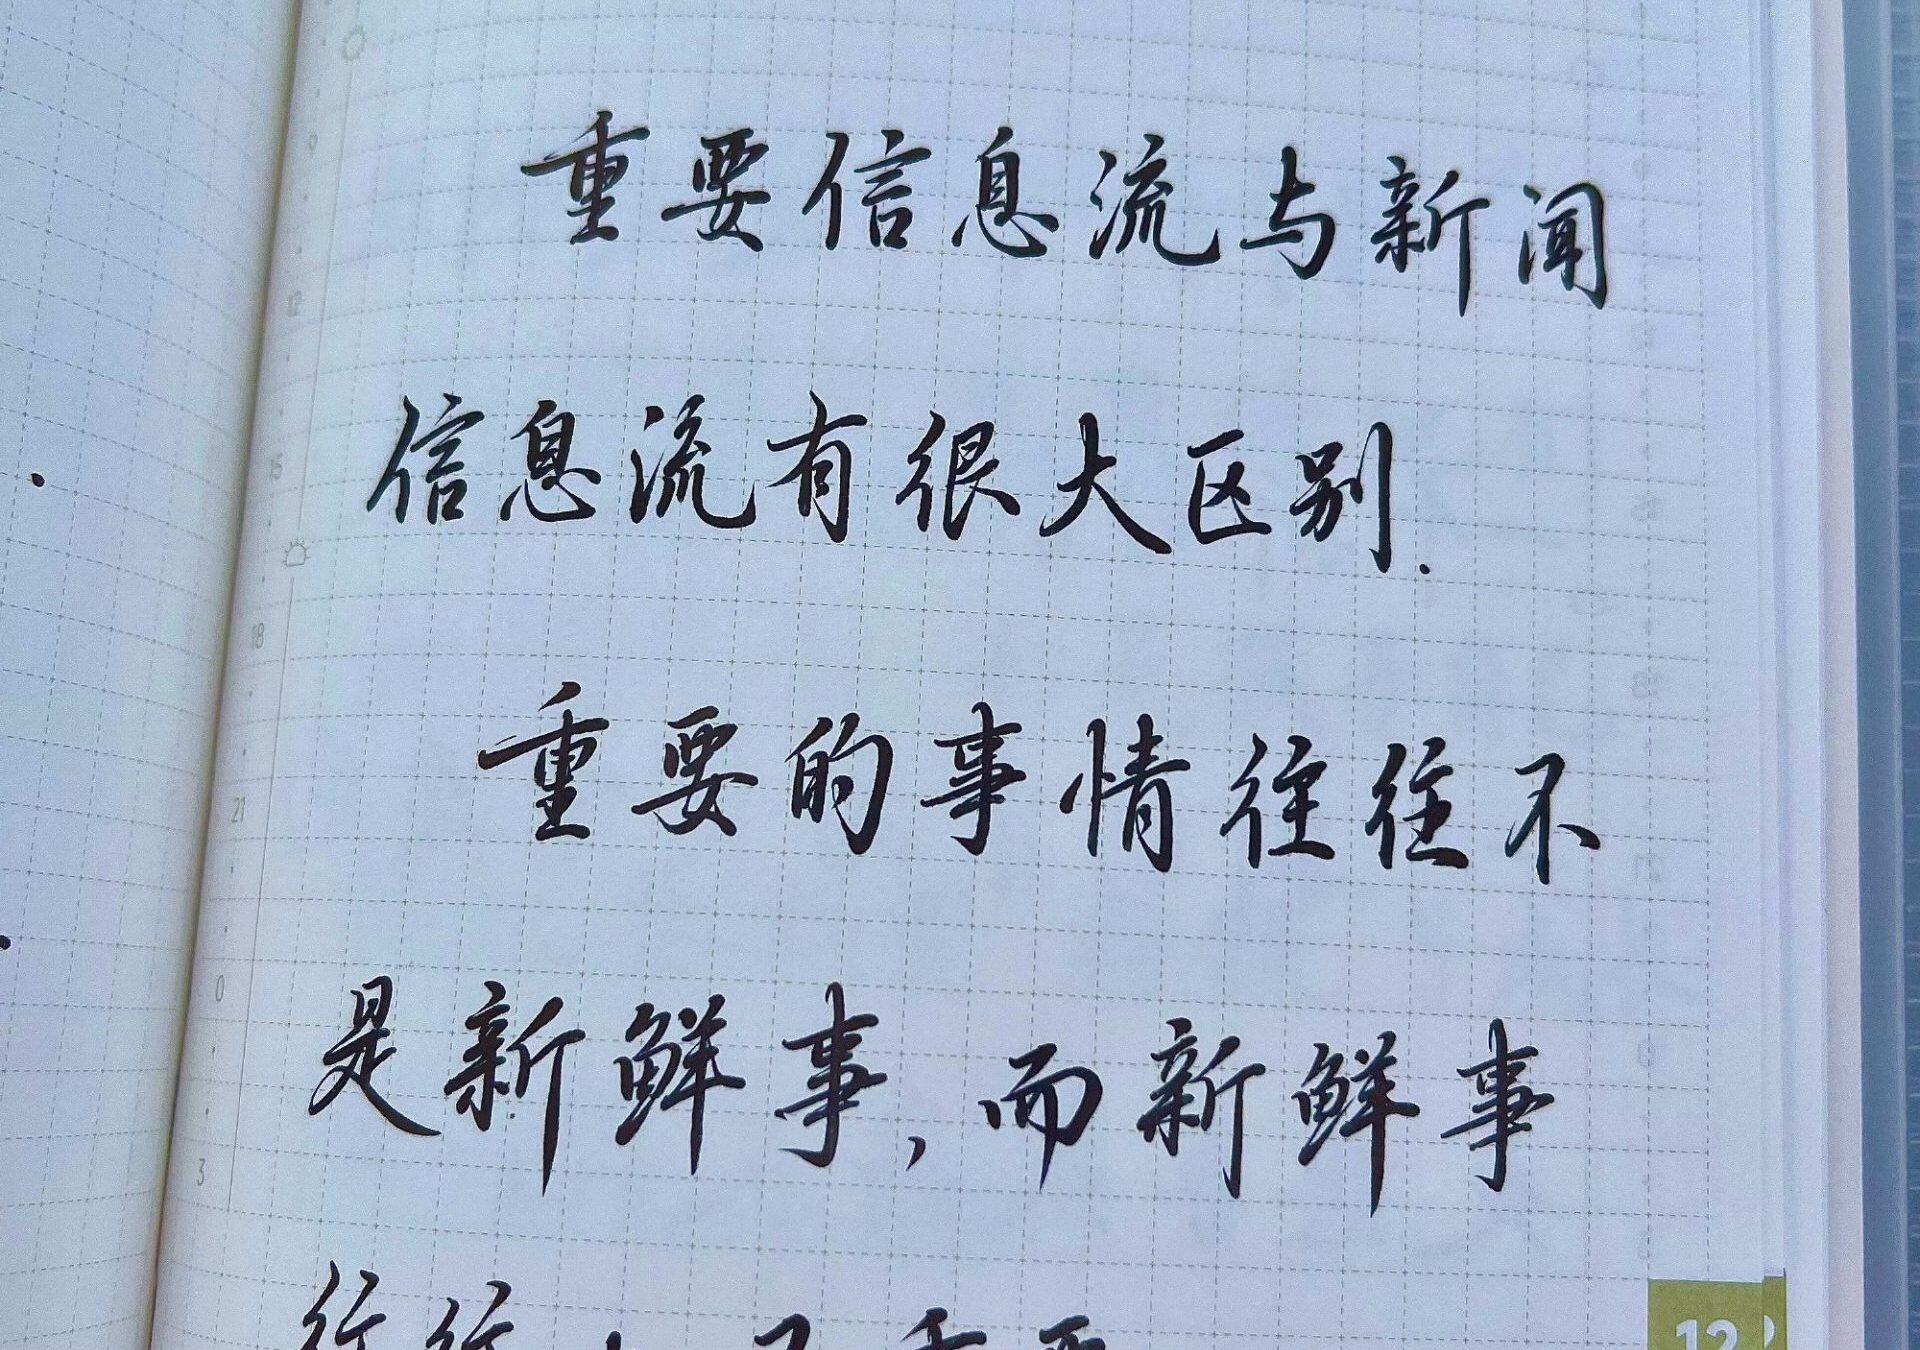 重要信息流与新闻
信息流有很大区别.
重要的事情往往不
是新鲜事,而新鲜事
往往
12